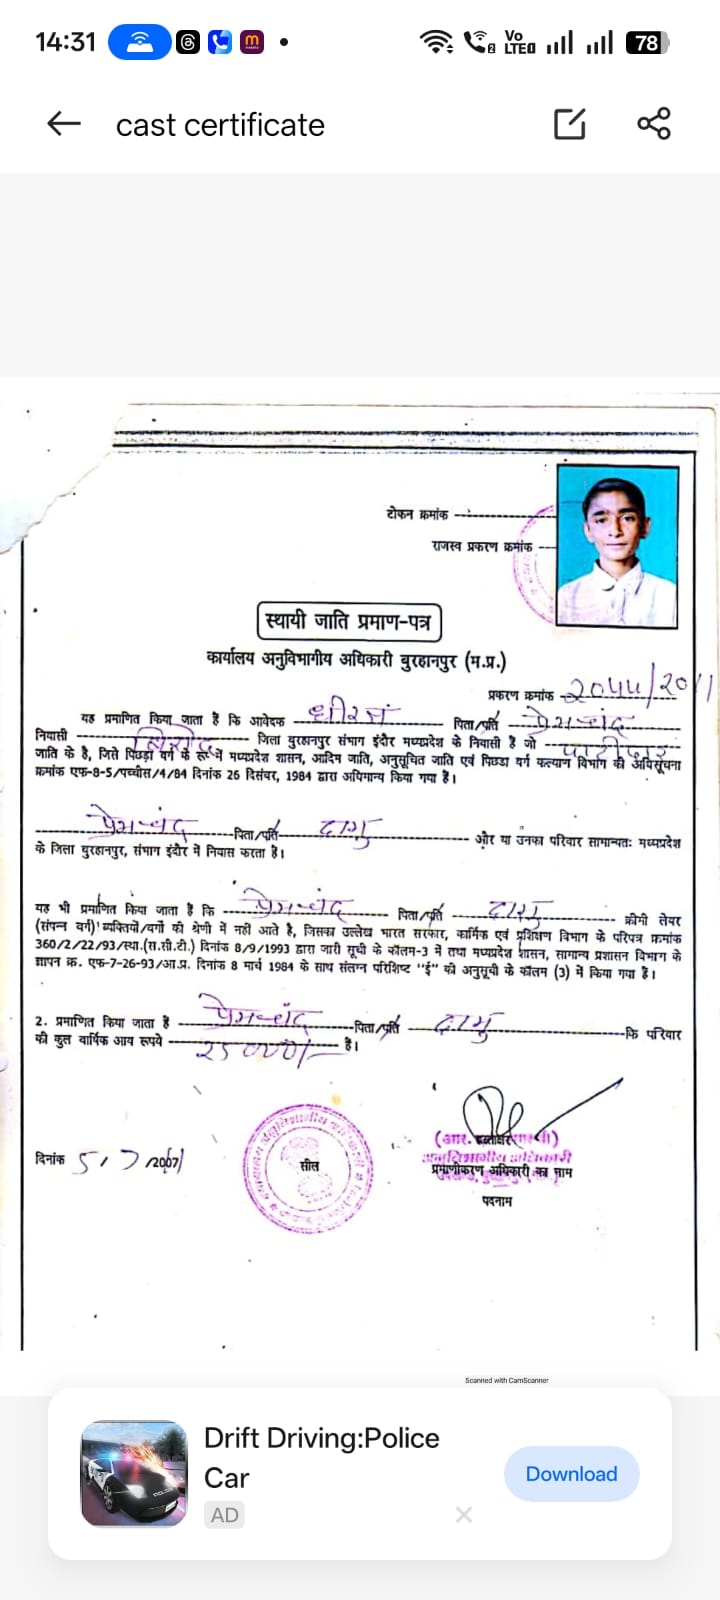 14:31
Vo LTE 2 78
cast certificate
टोकन क्रमांक
राजस्व प्रकरण क्रमांक
स्थायी जाति प्रमाण-पत्र
कार्यालय अनुविभागीय अधिकारी बुरहानपुर (म.प्र.)
प्रकरण क्रमांक
यह प्रमाणित किया जाता हैं कि आवेदक पिता/पति प्रेमचंद
निवासी जिला बुरहानपुर संभाग इंदौर मध्यप्रदेश के निवासी हैं जो
जाति के है, जिसे पिछड़ा वर्ग के रूप में मध्यप्रदेश शासन, आदिम जाति, अनुसूचित जाति एवं पिछडा वर्ग कल्याण विभाग की अधिसूचना
क्रमांक एफ-8-5/पच्चीस/4/84 दिनांक 26 दिसंबर, 1984 द्वारा अधिमान्य किया गया है।
प्रेमचंद पिता/पति दामु और या उनका परिवार सामान्यतः मध्यप्रदेश
के जिला बुरहानपुर, संभाग इंदौर में निवास करता है।
यह भी प्रमाणित किया जाता है कि प्रेमचंद पिता/पति दामु क्रीमी लेयर
(संपन्न वर्ग) व्यक्तियों/वर्गों की श्रेणी में नही आते है, जिसका उल्लेख भारत सरकार, कार्मिक एवं प्रशिक्षण विभाग के परिपत्र क्रमांक
360/2/22/93/स्था.(स.सी.टी.) दिनांक 8/9/1993 द्वारा जारी सूची के कॉलम-3 में तथा मध्यप्रदेश शासन, सामान्य प्रशासन विभाग के
ज्ञापन क्र. एफ-7-26-93/आ.प्र. दिनांक 8 मार्च 1984 के साथ संलग्न परिशिष्ट "ई" की अनुसूची के कॉलम (3) में किया गया है।
2. प्रमाणित किया जाता है प्रेमचंद पिता/पति दामु कि परिवार
की कुल वार्षिक आय रूपये २५०००/- है।
दिनांक
सील
प्रमाणीकरण अधिकारी का नाम
पदनाम
Scanned with CamScanner
Drift Driving:Police
Car
AD
Download